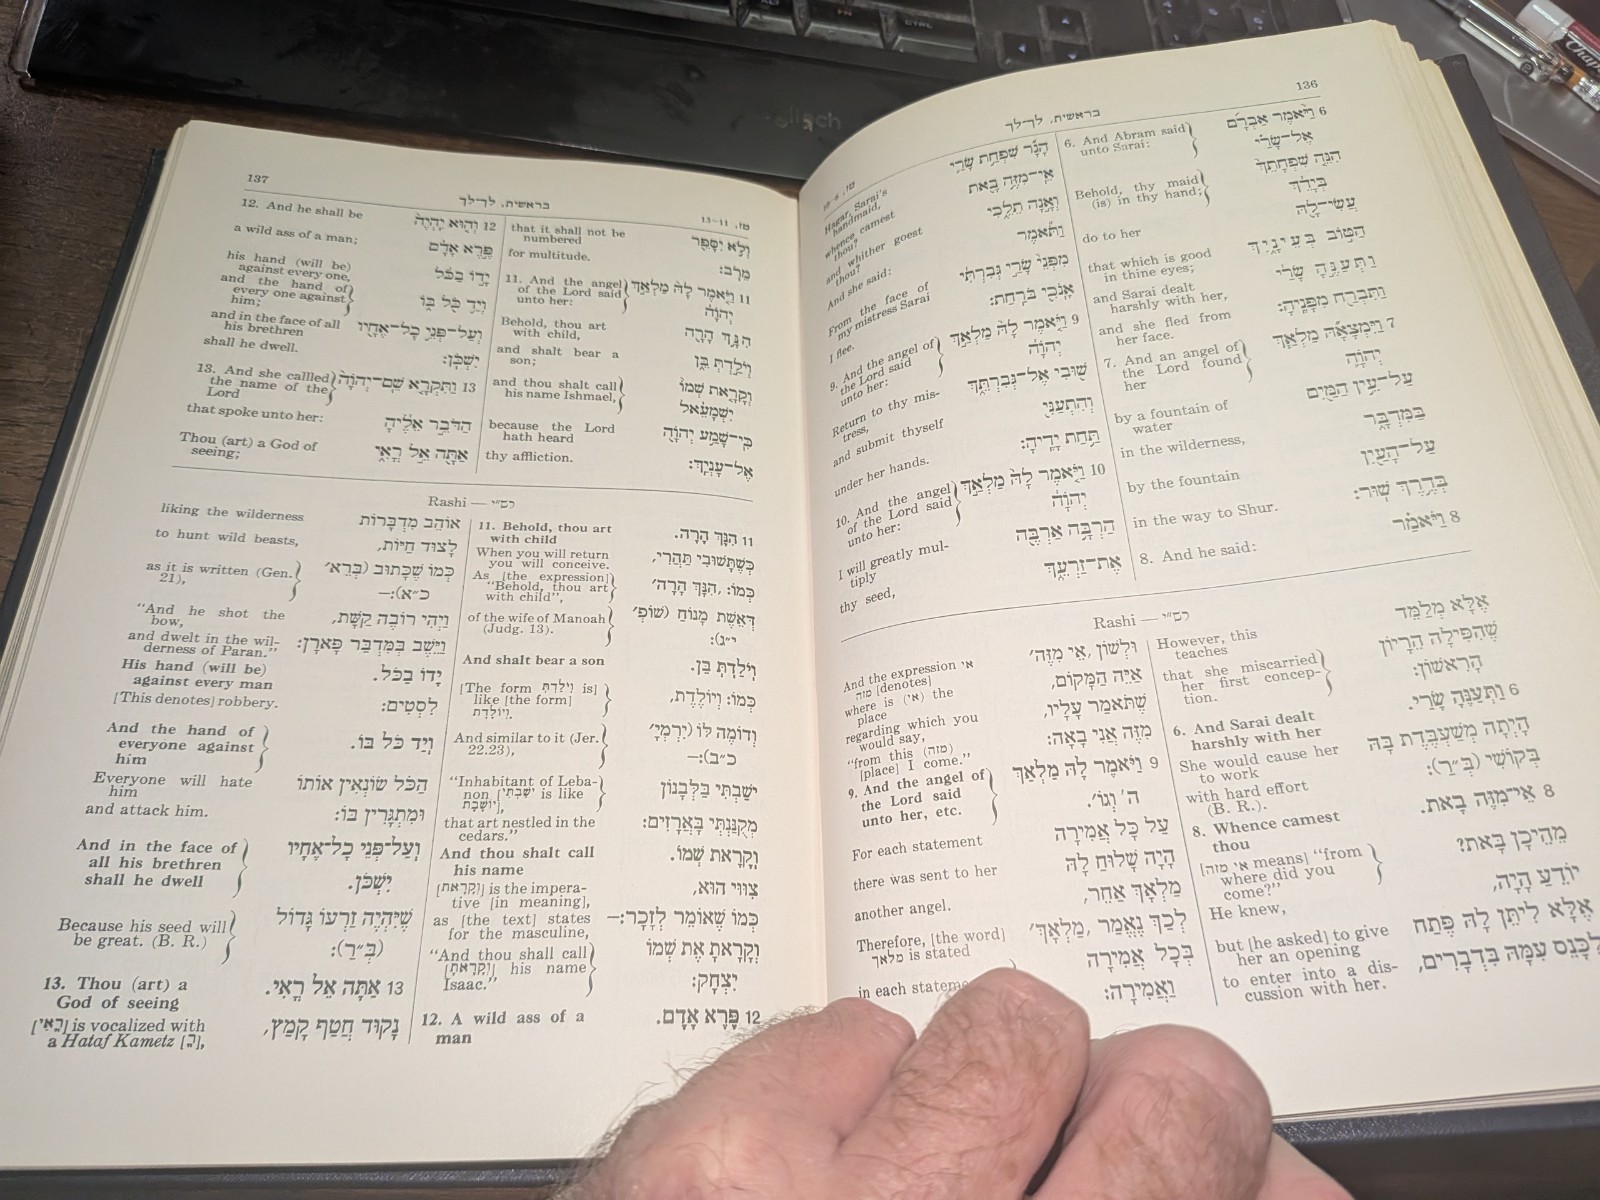 136
בראשית, לך־לך
6 וַיֹּאמֶר אַבְרָם
אֶל־שָׂרַי
הִנֵּה שִׁפְחָתֵךְ
בְּיָדֵךְ
עֲשִׂי־לָהּ
הַטּוֹב בְּעֵינָיִךְ
וַתְּעַנֶּהָ שָׂרַי
וַתִּבְרַח מִפָּנֶיהָ:
7 וַיִּמְצָאָהּ מַלְאַךְ
יְהוָֹה
עַל־עֵין הַמַּיִם
בַּמִּדְבָּר
עַל־הָעַיִן
בְּדֶרֶךְ שׁוּר:
8 וַיֹּאמַר
6. And Abram said
unto Sarai:
Behold, thy maid
(is) in thy hand;
do to her
that which is good
in thine eyes;
and Sarai dealt
harshly with her,
and she fled from
her face.
7. And an angel of
the Lord found
her
by a fountain of
water
in the wilderness,
by the fountain
in the way to Shur.
8. And he said:
הָגָר שִׁפְחַת שָׂרַי
אֵי־מִזֶּה בָאת
וְאָנָה תֵלֵכִי
וַתֹּאמֶר
מִפְּנֵי שָׂרַי גְּבִרְתִּי
אָנֹכִי בֹּרַחַת:
9 וַיֹּאמֶר לָהּ מַלְאַךְ
יְהוָֹה
שׁוּבִי אֶל־גְּבִרְתֵּךְ
וְהִתְעַנִּי
תַּחַת יָדֶיהָ:
10 וַיֹּאמֶר לָהּ מַלְאַךְ
יְהוָֹה
הַרְבָּה אַרְבֶּה
אֶת־זַרְעֵךְ
Hagar, Sarai's
handmaid,
whence camest
thou?
and whither goest
thou?
And she said:
From the face of
my mistress Sarai
I flee.
9. And the angel of
the Lord said
unto her:
Return to thy mis-
tress,
and submit thyself
under her hands.
10. And the angel
of the Lord said
unto her:
I will greatly mul-
tiply
thy seed,
Rashi — רש״י
אֶלָּא מְלַמֵּד
שֶׁהִפִּילָה הֵרָיוֹן
הָרִאשׁוֹן:
6 וַתְּעַנֶּהָ שָׂרַי.
הָיְתָה מְשַׁעְבֶּדֶת בָּהּ
בְּקוֹשִׁי (בְּ״ר):
8 אֵי־מִזֶּה בָאת.
מֵהֵיכָן בָּאת?
יוֹדֵעַ הָיָה,
אֶלָּא לִיתֵּן לָהּ פֶּתַח
לִכָּנֵס עִמָּהּ בִּדְבָרִים,
However, this
teaches
that she miscarried
her first concep-
tion.
6. And Sarai dealt
harshly with her
She would cause her
to work
with hard effort
(B. R.).
8. Whence camest
thou
[אי מזה means] "from
where did you
come?"
He knew,
but [he asked] to give
her an opening
to enter into a dis-
cussion with her.
וּלְשׁוֹן ,אֵי מִזֶּה׳
אַיֵּה הַמָּקוֹם,
שֶׁתֹּאמַר עָלָיו,
מִזֶּה אֲנִי בָאָה:
9 וַיֹּאמֶר לָהּ מַלְאַךְ
ה׳ וְגוֹ׳.
עַל כָּל אֲמִירָה
הָיָה שָׁלוּחַ לָהּ
מַלְאָךְ אַחֵר,
לְכַךְ נֶאֱמַר ,מַלְאָךְ׳
בְּכָל אֲמִירָה
וַאֲמִירָה:
And the expression אי
מזה [denotes]
where is (אי) the
place
regarding which you
would say,
"from this (מזה)
[place] I come."
9. And the angel of
the Lord said
unto her, etc.
For each statement
there was sent to her
another angel.
Therefore, [the word]
מלאך is stated
in each
137
בראשית, לך־לך
טז, 11–13
וְלֹא יִסָּפֵר
מֵרֹב:
11 וַיֹּאמֶר לָהּ מַלְאַךְ
יְהוָֹה
הִנָּךְ הָרָה
וְיֹלַדְתְּ בֵּן
וְקָרָאת שְׁמוֹ
יִשְׁמָעֵאל
כִּי־שָׁמַע יְהוָֹה
אֶל־עָנְיֵךְ:
that it shall not be
numbered
for multitude.
11. And the angel
of the Lord said
unto her:
Behold, thou art
with child,
and shalt bear a
son;
and thou shalt call
his name Ishmael,
because the Lord
hath heard
thy affliction.
12 וְהוּא יִהְיֶה
פֶּרֶא אָדָם
יָדוֹ בַכֹּל
וְיַד כֹּל בּוֹ
וְעַל־פְּנֵי כָל־אֶחָיו
יִשְׁכֹּן:
13 וַתִּקְרָא שֵׁם־יְהוָֹה
הַדֹּבֵר אֵלֶיהָ
אַתָּה אֵל רֳאִי
12. And he shall be
a wild ass of a man;
his hand (will be)
against every one,
and the hand of
every one against
him;
and in the face of all
his brethren
shall he dwell.
13. And she callled
the name of the
Lord
that spoke unto her:
Thou (art) a God of
seeing;
Rashi — רש״י
11 הִנָּךְ הָרָה.
כְּשֶׁתָּשׁוּבִי תַּהֲרִי,
כְּמוֹ: ,הִנָּךְ הָרָה׳
דְּאֵשֶׁת מָנוֹחַ (שׁוֹפ׳
י״ג):
וְיֹלַדְתְּ בֵּן.
כְּמוֹ: וְיוֹלֶדֶת,
וְדוֹמֶה לוֹ (יִרְמְי׳
כ״ב):–
יֹשַׁבְתִּי בַּלְּבָנוֹן
מְקֻנַּנְתִּי בָּאֲרָזִים:
וְקָרָאת שְׁמוֹ.
צִוּוּי הוּא,
כְּמוֹ שֶׁאוֹמֵר לְזָכָר:–
וְקָרָאתָ אֶת שְׁמוֹ
יִצְחָק:
12 פֶּרֶא אָדָם.
11. Behold, thou art
with child
When you will return
you will conceive.
As [the expression]
"Behold, thou art
with child",
of the wife of Manoah
(Judg. 13).
And shalt bear a son
[The form וְיֹלַדְתְּ is]
like [the form]
וְיוֹלֶדֶת.
And similar to it (Jer.
22.23),
"Inhabitant of Leba-
non [יֹשַׁבְתִּי is like
יוֹשֶׁבֶת],
that art nestled in the
cedars."
And thou shalt call
his name
[וְקָרָאת] is the impera-
tive [in meaning],
as [the text] states
for the masculine,
"And thou shall call
[וְקָרָאתָ] his name
Isaac."
12. A wild ass of a
man
אוֹהֵב מִדְבָּרוֹת
לָצוּד חַיּוֹת,
כְּמוֹ שֶׁכָּתוּב (בְּרֵא׳
כ״א):–
וַיְהִי רוֹבֶה קַשָּׁת,
וַיֵּשֶׁב בְּמִדְבַּר פָּארָן:
יָדוֹ בַכֹּל.
לִסְטִים:
וְיַד כֹּל בּוֹ.
הַכֹּל שׂוֹנְאִין אוֹתוֹ
וּמִתְגָּרִין בּוֹ:
וְעַל־פְּנֵי כָל־אֶחָיו
יִשְׁכֹּן.
שֶׁיִּהְיֶה זַרְעוֹ גָּדוֹל
(בְּ״ר):
13 אַתָּה אֵל רֳאִי.
נָקוּד חֲטַף קָמַץ,
liking the wilderness
to hunt wild beasts,
as it is written (Gen.
21),
"And he shot the
bow,
and dwelt in the wil-
derness of Paran."
His hand (will be)
against every man
[This denotes] robbery.
And the hand of
everyone against
him
Everyone will hate
him
and attack him.
And in the face of
all his brethren
shall he dwell
Because his seed will
be great. (B. R.)
13. Thou (art) a
God of seeing
[רֳאִי] is vocalized with
a Hataf Kametz [רֳ],
CTRL